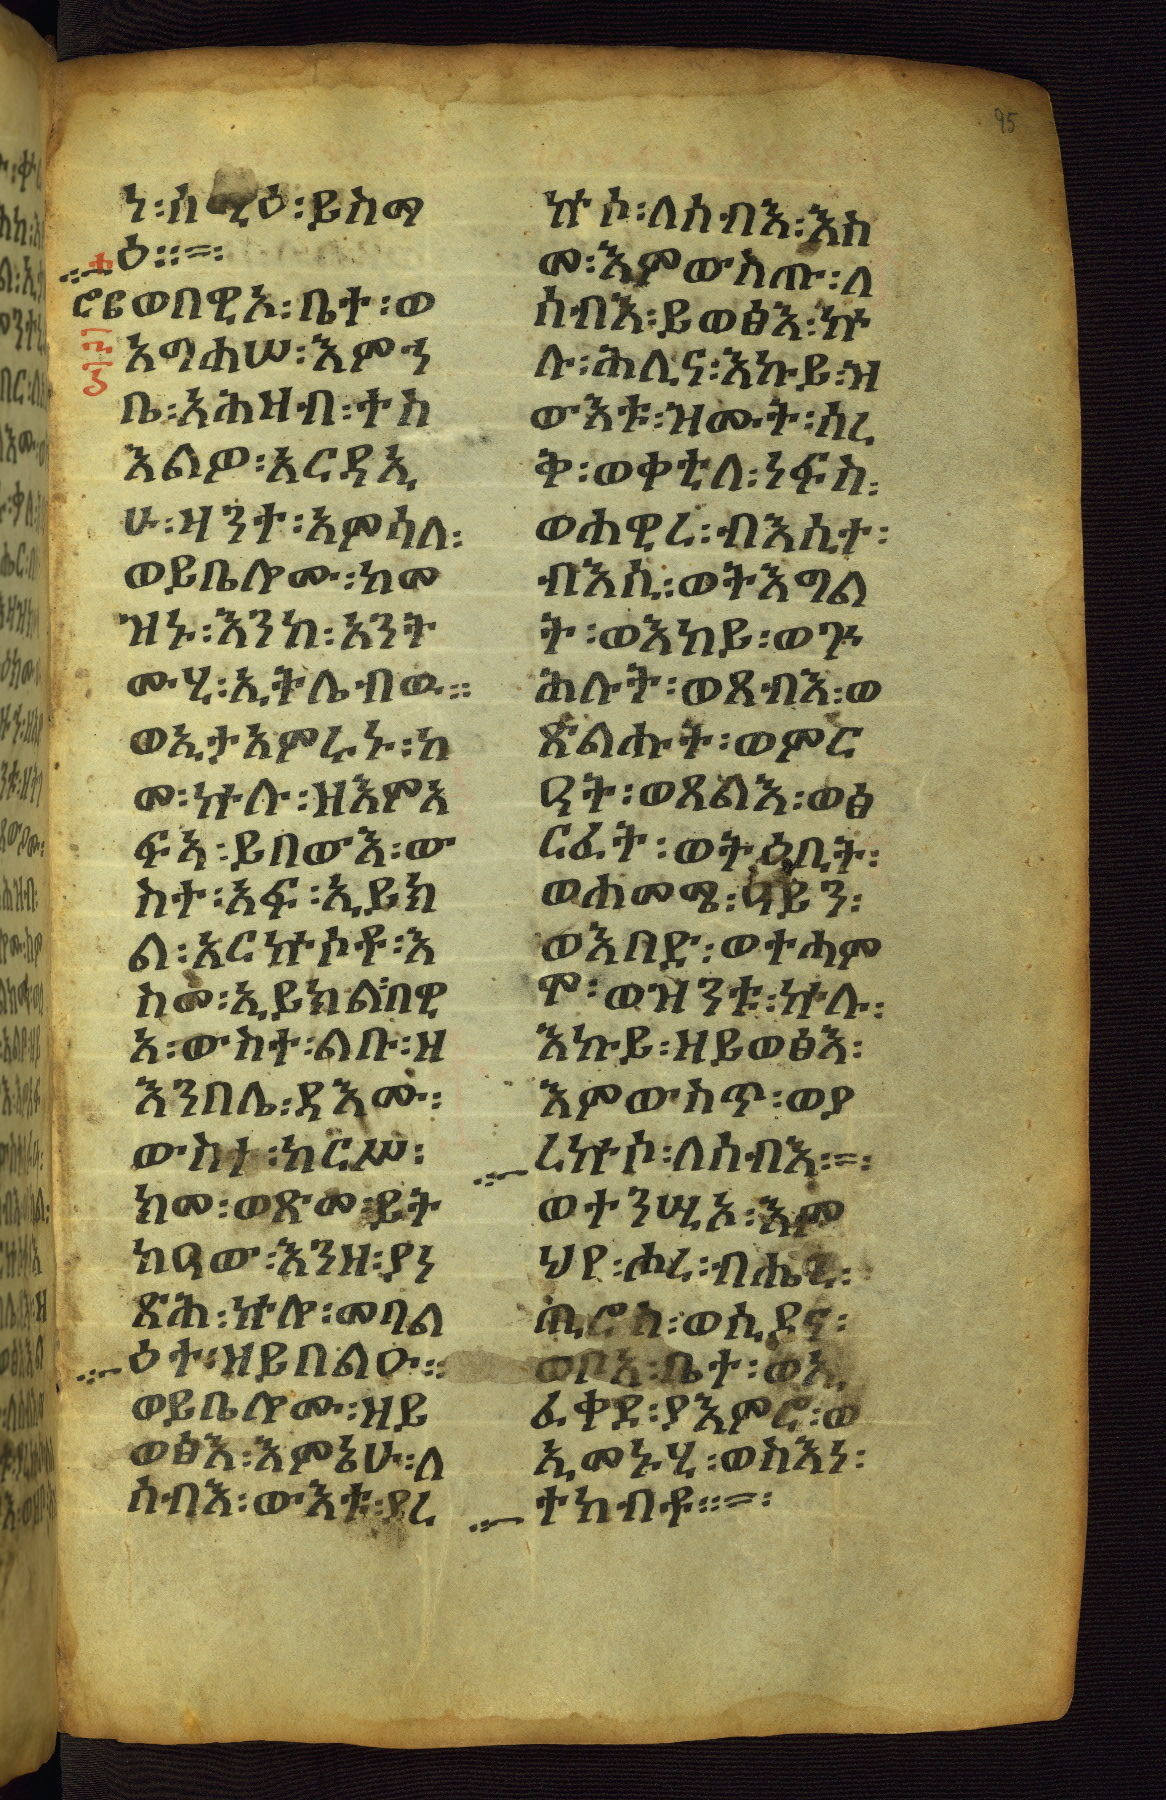 95
ነ፡ሰሚዕ፡ይስማ
ዕ።=፡
ወበዊኦ፡ቤተ፡ወ
አግሐሠ፡እምኀ
ቤ፡አሕዛብ፡ተስ
እልዎ፡አርዳኢ
ሁ፡ዛንተ፡አምሳለ፡
ወይቤሎሙ፡ከመ
ዝኑ፡እንከ፡አንት
ሙሂ፡ኢትሌብዉ።
ወኢታአምሩኑ፡ከ
መ፡ኵሉ፡ዘእምአ
ፍአ፡ይበውእ፡ው
ስተ፡አፍ፡ኢይክ
ል፡አርኵሶቶ፡እ
ስመ፡ኢይክል፡በዊ
አ፡ውስተ፡ልቡ፡ዘ
እንበሌ፡ዳእሙ፡
ውስተ፡ከርሡ፡
ክመ፡ወጽመ፡ይት
ከዓው፡እንዘ፡ያነ
ጽሕ፡ኵሎ፡መባል
ዕተ፡ዘይበልዑ።
ወይቤሎሙ፡ዘይ
ወፅእ፡እምኔሁ፡ለ
ሰብእ፡ውእቱ፡ያረ
ኵሶ፡ለሰብእ፡እስ
መ፡እምውስጡ፡ለ
ሰብእ፡ይወፅእ፡ኵ
ሉ፡ሕሊና፡እኩይ፡ዝ
ውእቱ፡ዝሙት፡ሰረ
ቅ፡ወቀቲለ፡ነፍስ፡
ወሐዊረ፡ብእሲተ፡
ብእሲ፡ወትእግል
ት፡ወእከይ፡ወጕ
ሕሉት፡ወጸብእ፡ወ
ጽልሑት፡ወምር
ዓት፡ወጸልእ፡ወፅ
ርፈት፡ወትዕቢት፡
ወሐመሜ፡ዓይን፡
ወእበድ፡ወተሓም
ሞ፡ወዝንቱ፡ኵሉ፡
እኩይ፡ዘይወፅእ፡
እምውስጥ፡ወያ
ረኵሶ፡ለሰብእ፡=፡
ወተንሢኦ፡እም
ህየ፡ሖረ፡ብሔረ፡
ጢሮስ፡ወሲዶና፡
ወቦአ፡ቤተ፡ወኢ
ፈቀደ፡ያእምሮ፡ወ
ኢመኑሂ፡ወስእነ፡
ተከብቶ።=፡